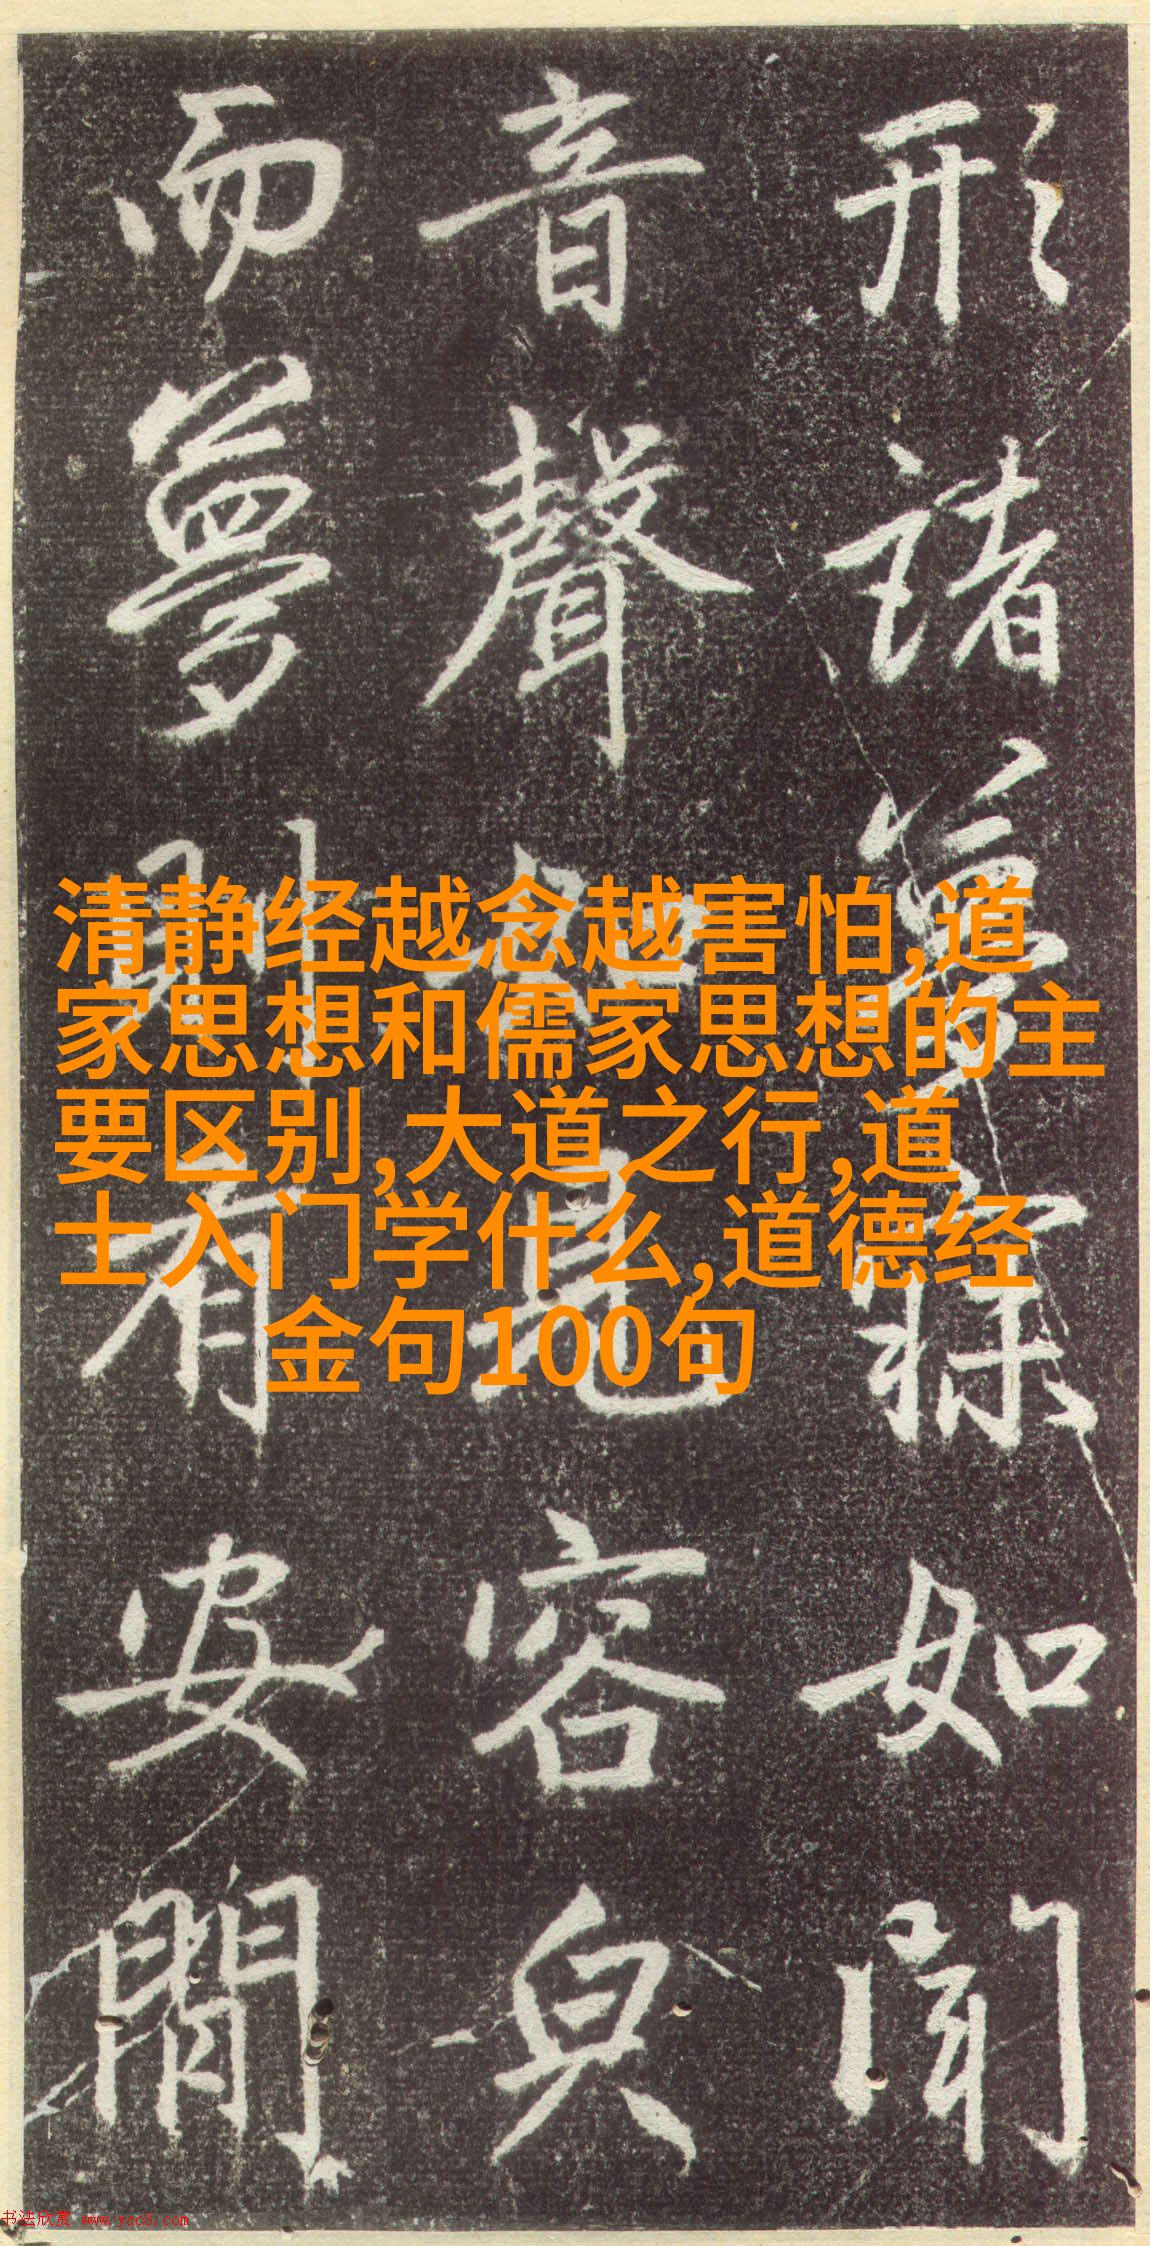 形諸夢寐如聞
音聲如見容皃
而夢則有安閒
清静经越念越害怕,道
家思想和儒家思想的主
要区别,大道之行,道
士入门学什么,道德经
金句100句
书法欣赏 www.yac8.com